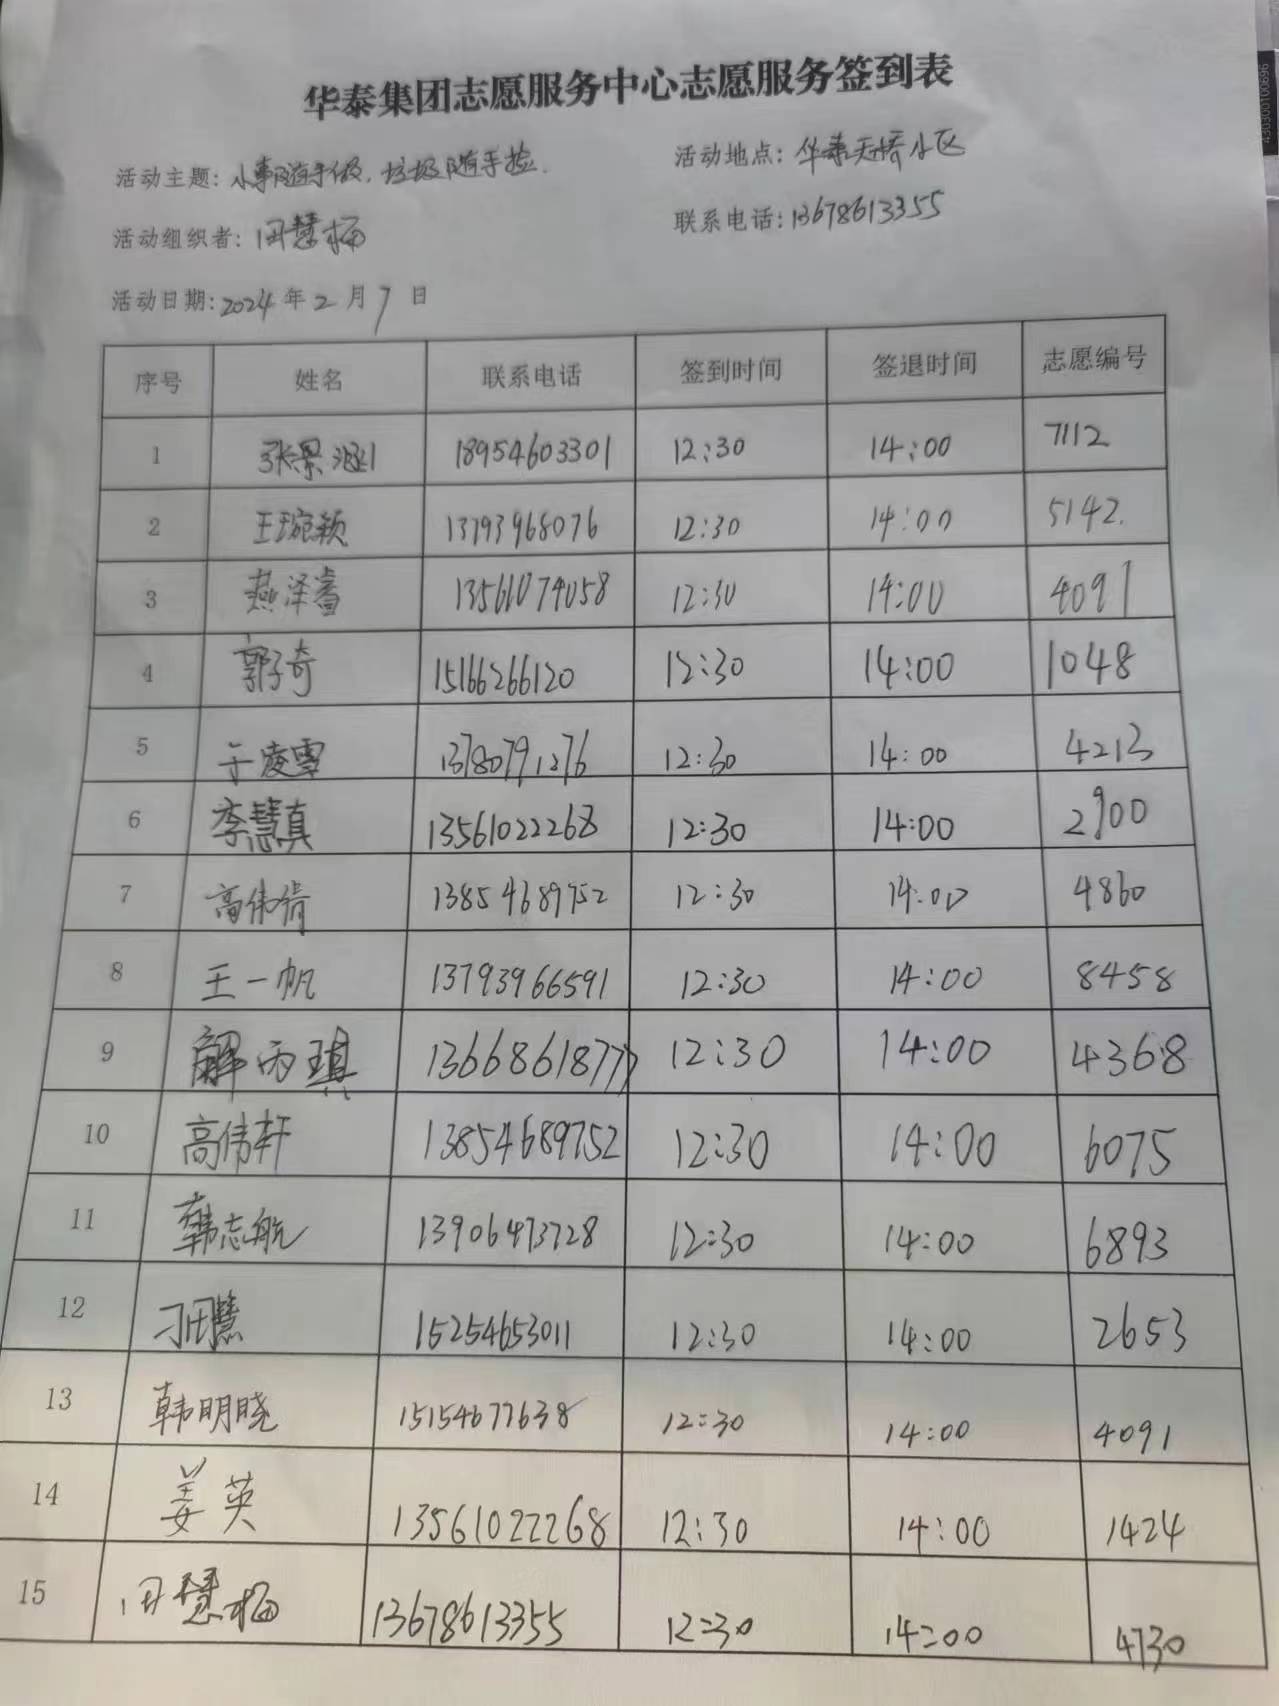 华泰集团志愿服务中心志愿服务签到表
活动主题: 小事随手做. 垃圾随手捡. 活动地点: 华泰天桥小区
活动组织者: 田慧梅 联系电话: 13678613355
活动日期: 2024 年 2 月 7 日
序号 姓名 联系电话 签到时间 签退时间 志愿编号
1 张景涵 18954603301 12:30 14:00 7112
2 王琬颖 13793968076 12:30 14:00 5142.
3 燕泽睿 13561074058 12:30 14:00 4091
4 郭子奇 15166266120 12:30 14:00 1048
5 于凌雪 13780791276 12:30 14:00 4213
6 李慧真 13561022268 12:30 14:00 2900
7 高伟倩 13854689752 12:30 14:00 4860
8 王一帆 13793966591 12:30 14:00 8458
9 解丙琪 13668618777 12:30 14:00 4368
10 高伟轩 13854689752 12:30 14:00 6075
11 韩志航 13906473728 12:30 14:00 6893
12 刁田慧 15254653011 12:30 14:00 2653
13 韩明晓 15154677638 12:30 14:00 4091
14 姜英 13561022268 12:30 14:00 1424
15 田慧梅 13678613355 12:30 14:00 4730
430300100696